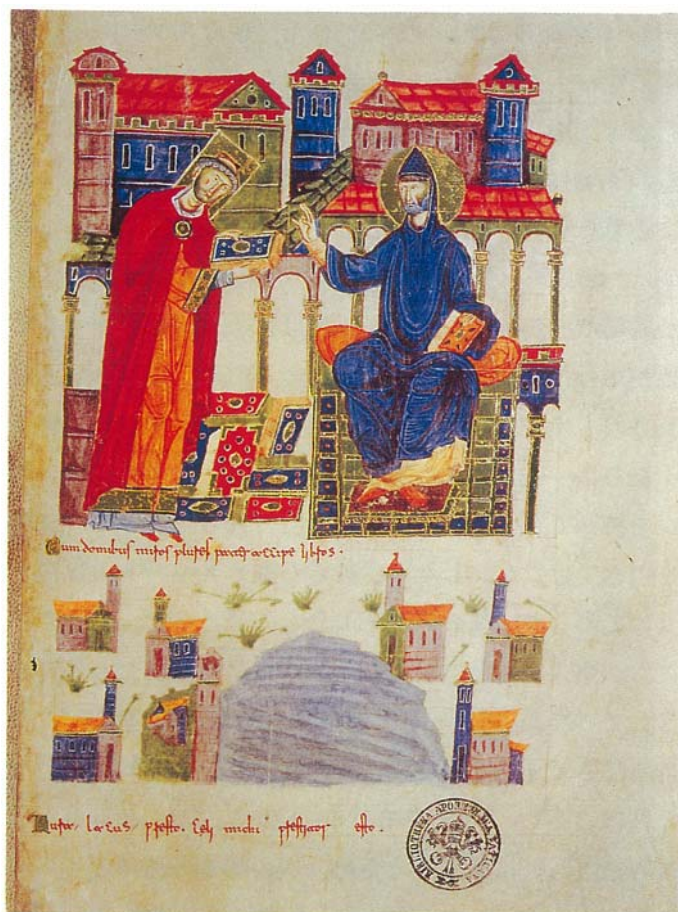 Cum domibus miros plures pat accipe libros.
Rura, lacus, presto. Celi michi prestitor esto.
BIBLIOTHECA APOSTOLICA VATICANA